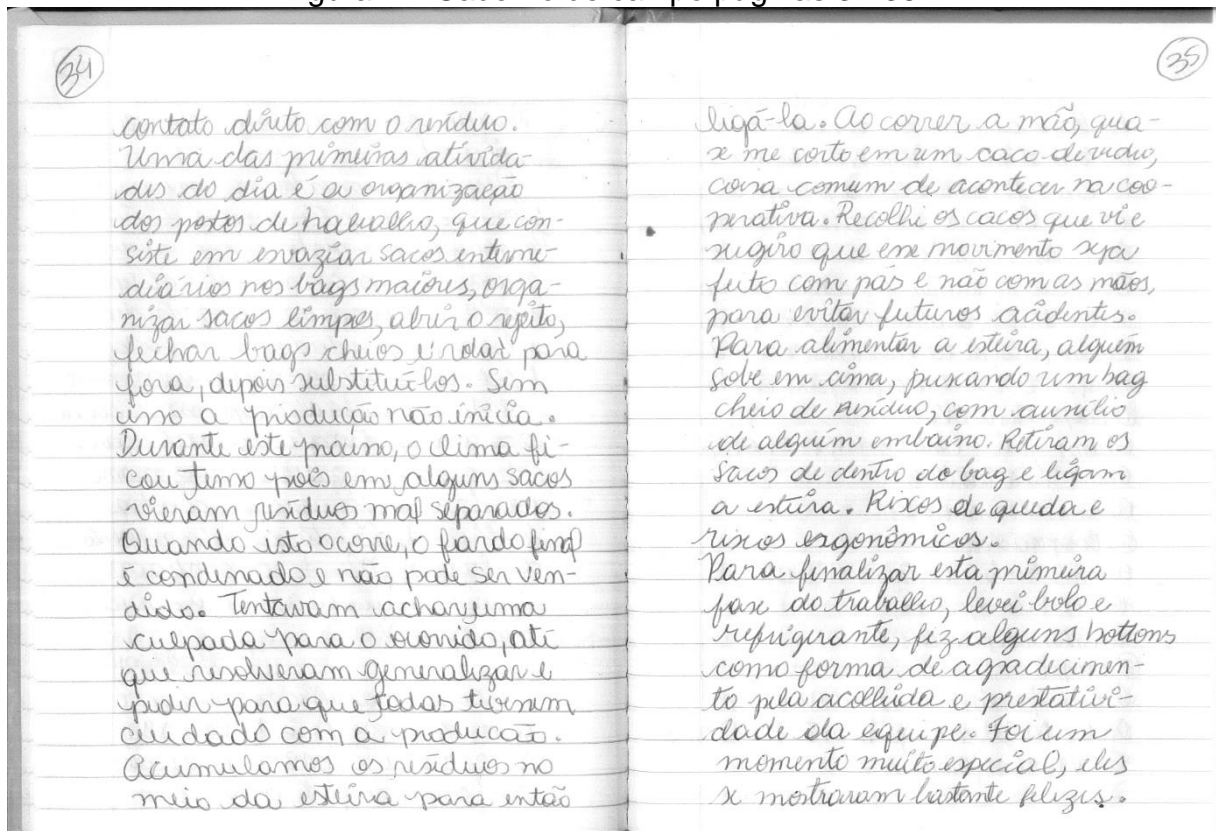 34
contato direto com o resíduo.
Uma das primeiras ativida-
des do dia é a organização
dos postos de trabalho, que con-
siste em esvaziar sacos interme-
diários nos bags maiores, orga-
nizar sacos limpos, abrir o rejeito,
fechar bags cheios e rolar para
fora, depois substituí-los. Sem
isso a produção não inicia.
Durante este processo, o clima fi-
cou tenso pois em alguns sacos
vieram resíduos mal separados.
Quando isto ocorre, o fardo final
é condenado e não pode ser ven-
dido. Tentavam achar uma
culpada para o ocorrido, até
que resolveram generalizar e
pedir para que todas tivessem
cuidado com a produção.
Acumulamos os resíduos no
meio da esteira para então
35
ligá-la. Ao correr a mão, qua-
se me corto em um caco de vidro,
coisa comum de acontecer na coo-
perativa. Recolhi os cacos que vi e
sugiro que esse movimento seja
feito com pás e não com as mãos,
para evitar futuros acidentes.
Para alimentar a esteira, alguém
sobe em cima, puxando um bag
cheio de resíduo, com auxílio
de alguém embaixo. Retiram os
sacos de dentro do bag e ligam
a esteira. Riscos de queda e
riscos ergonômicos.
Para finalizar esta primeira
fase do trabalho, levei bolo e
refrigerante, fiz alguns bottons
como forma de agradecimen-
to pela acolhida e prestativi-
dade da equipe. Foi um
momento muito especial, eles
se mostraram bastante felizes.